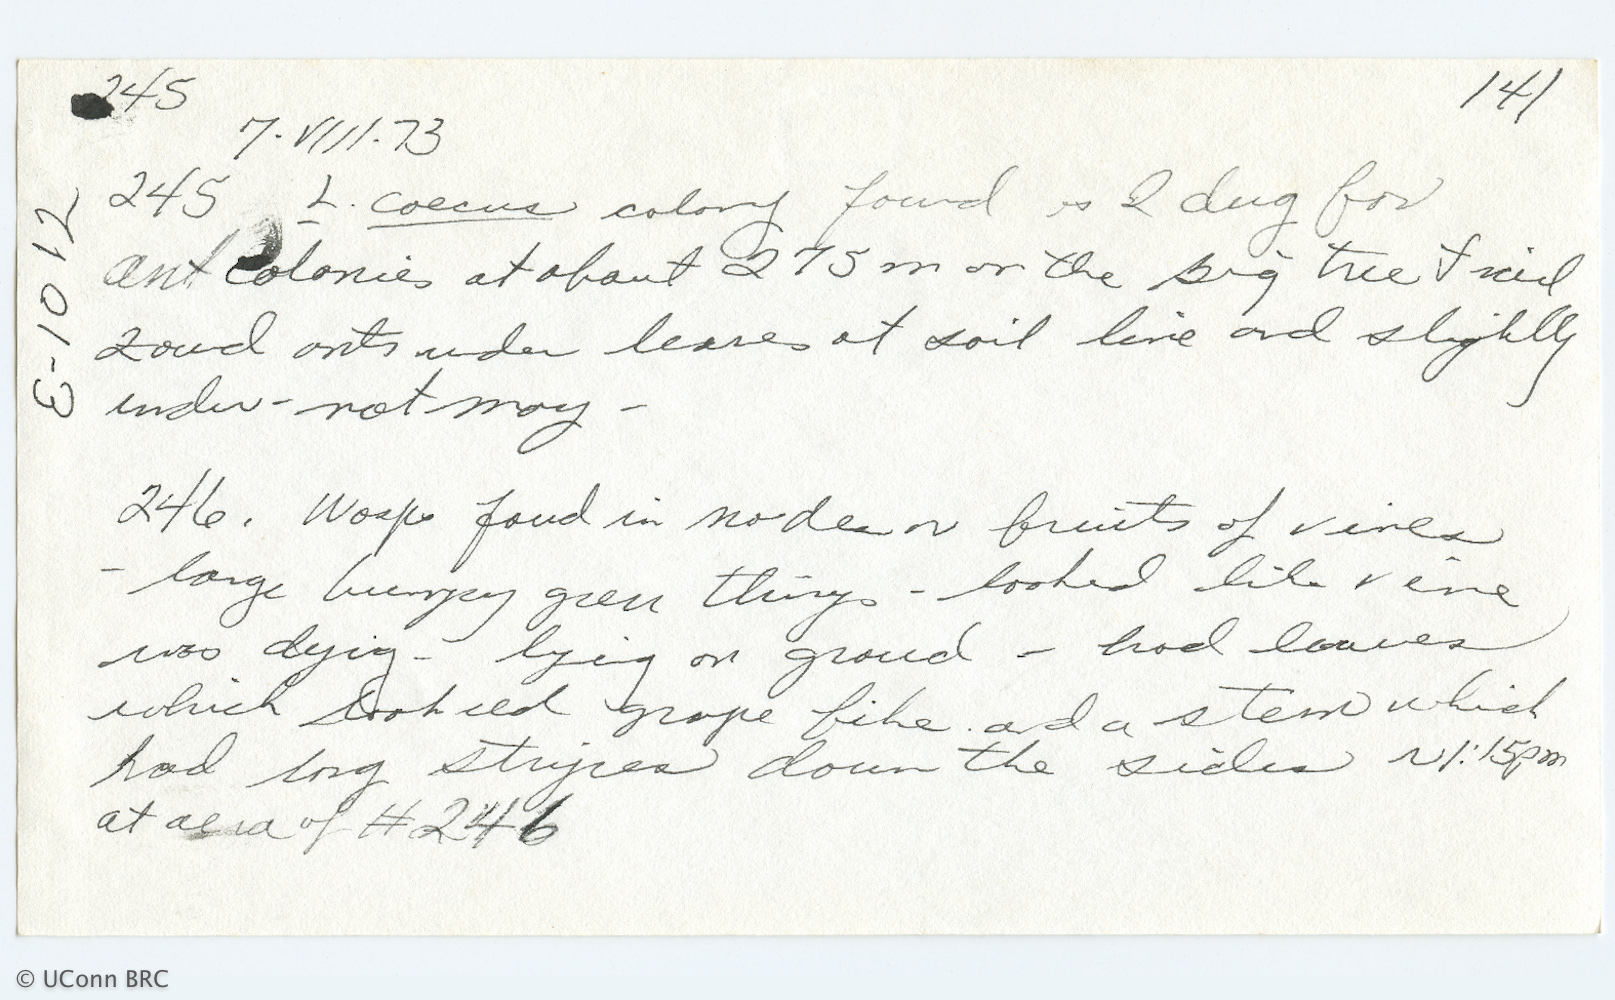 245
141
7.VIII.73
245 L. coecus colony found as I dug for
ant colonies at about 275 m on the big tree Trail
Found ants under leaves at soil line and slightly
under - not many -
246. Wasps found in nodes or fruits of vines
- large bumpy green things - looked like vine
was dying - lying on ground - had leaves
which looked grape like and a stem which
had long stripes down the sides ~1:15pm
at area of #246
E-1012
© UConn BRC